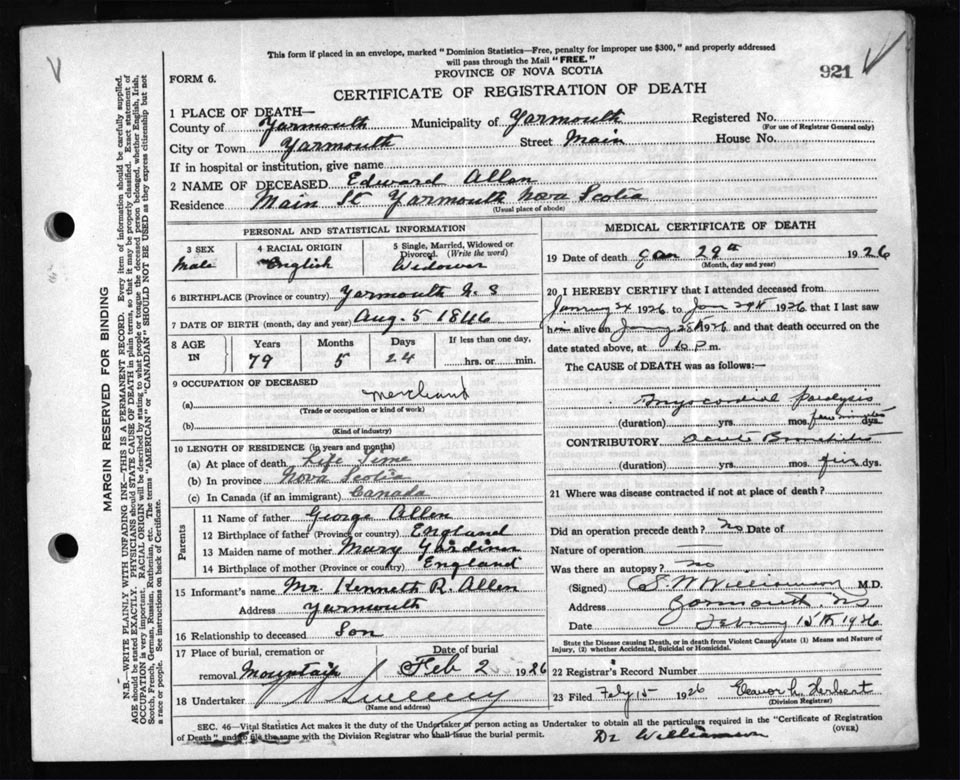 This form if placed in an envelope, marked "Dominion Statistics—Free, penalty for improper use $300," and properly addressed
will pass through the Mail "FREE."
PROVINCE OF NOVA SCOTIA
921
FORM 6.
CERTIFICATE OF REGISTRATION OF DEATH
MARGIN RESERVED FOR BINDING
N.B.—WRITE PLAINLY WITH UNFADING INK—THIS IS A PERMANENT RECORD. Every item of information should be carefully supplied.
AGE should be stated EXACTLY. PHYSICIANS should STATE CAUSE OF DEATH in plain terms, so that it may be properly classified. Exact statement of
OCCUPATION is very important. RACIAL ORIGIN will be described by stating to what people or tongue the deceased person belonged, whether English, Irish,
Scotch, French, German, Russian, Ruthenian, etc. The terms "AMERICAN" or "CANADIAN" SHOULD NOT BE USED as they express citizenship but not
a race or people. See instructions on back of Certificate.
1 PLACE OF DEATH—
County of Yarmouth Municipality of Yarmouth Registered No.
(For use of Registrar General only)
City or Town Yarmouth Street Main House No.
If in hospital or institution, give name
2 NAME OF DECEASED Edward Allen
Residence Main St Yarmouth Nova Scotia
(Usual place of abode)
PERSONAL AND STATISTICAL INFORMATION
3 SEX 4 RACIAL ORIGIN 5 Single, Married, Widowed or
Divorced. (Write the word)
Male English Widower
6 BIRTHPLACE (Province or country) Yarmouth N. S
7 DATE OF BIRTH (month, day and year) Aug. 5 1846
8 AGE IN Years Months Days If less than one day,
79 5 24 hrs. or min.
9 OCCUPATION OF DECEASED
(a) Merchant
(Trade or occupation or kind of work)
(b)
(Kind of industry)
10 LENGTH OF RESIDENCE (in years and months)
(a) At place of death Life Time
(b) In province Nova Scotia
(c) In Canada (if an immigrant) Canada
Parents
11 Name of father George Allen
12 Birthplace of father (Province or country) England
13 Maiden name of mother Mary Gardiner
14 Birthplace of mother (Province or country) England
15 Informant's name Mr. Kenneth R. Allen
Address Yarmouth
16 Relationship to deceased Son
17 Place of burial, cremation or Date of burial
removal Mountain Feb 2 1926
18 Undertaker Sweeney
(Name and address)
MEDICAL CERTIFICATE OF DEATH
19 Date of death Jan 29th 1926
(Month, day and year)
20 I HEREBY CERTIFY that I attended deceased from
1926 to Jan 1926 that I last saw
him alive on 1926 and that death occurred on
date stated above, at 10 P m.
The CAUSE of DEATH was as follows:—
Myocardial Paralysis
(duration) yrs. mos. few minutes dys.
CONTRIBUTORY Acute Bronchitis
(duration) yrs. mos. five dys.
21 Where was disease contracted if not at place of death?
Did an operation precede death? no Date of
Nature of operation
Was there an autopsy? no
(Signed) S. W Williamson M.D.
Address Yarmouth NS
Date 15th 1926
State the Disease causing Death, or in death from Violent Causes, state (1) Means and Nature of
Injury, (2) whether Accidental, Suicidal or Homicidal.
22 Registrar's Record Number
23 Filed Feby 15 1926 Eleanor L. Herbert
(Division Registrar)
SEC. 46—Vital Statistics Act makes it the duty of the Undertaker or person acting as Undertaker to obtain all the particulars required in the "Certificate of Registration
of Death" and to file the same with the Division Registrar who shall issue the burial permit.
(OVER)
Dr Williamson